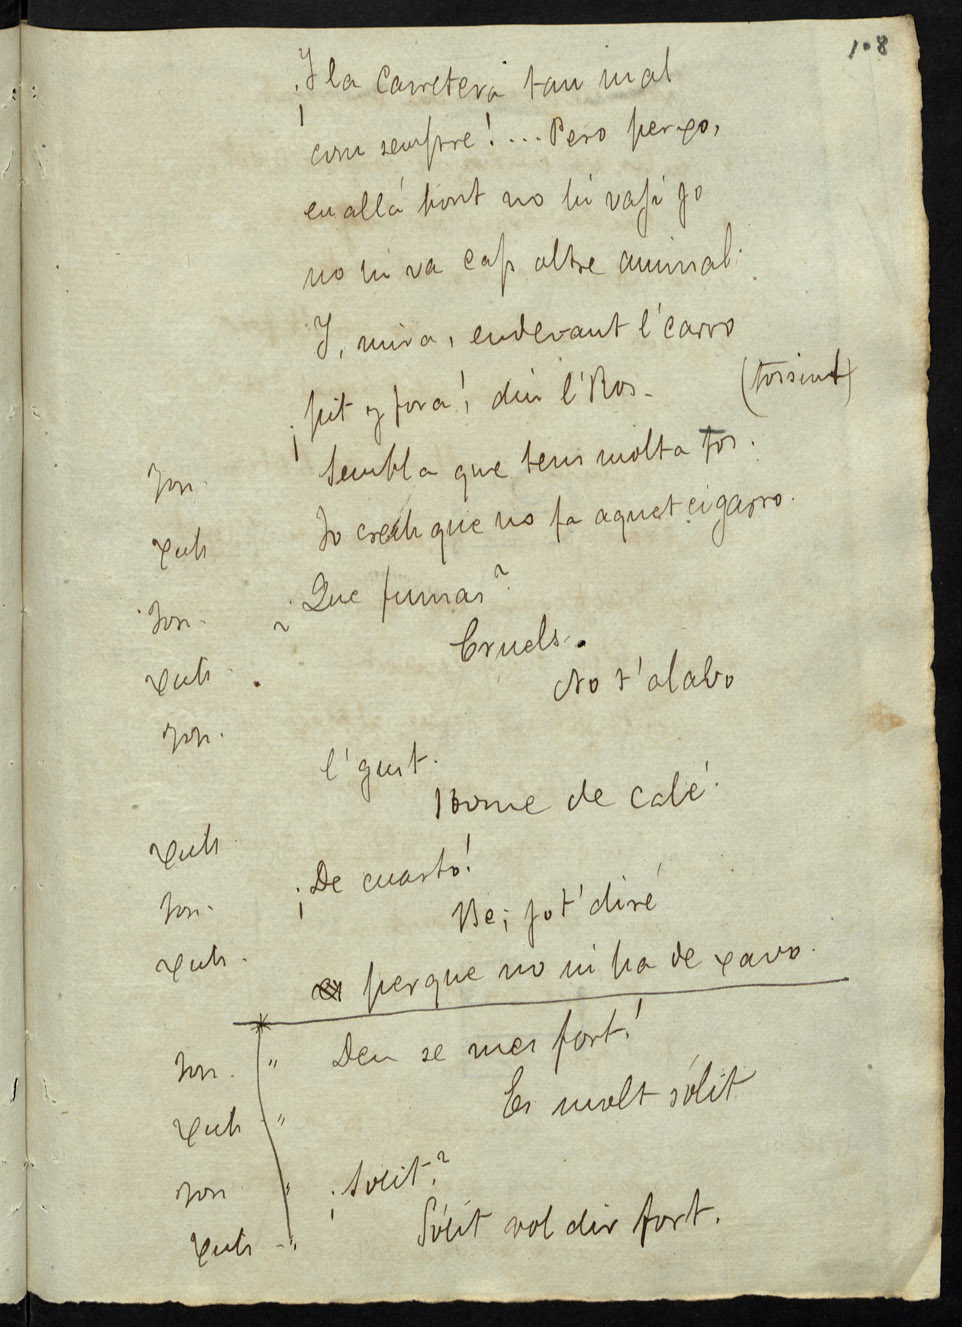 108
¡Y la carretera tan mal
com sempre!... Pero perxo,
en allá hont no hi vagi jo
no hi va cap altre animal.
Y, mira, endevant l'carro
¡pit y fora! diu l'Ros. (tossint)
Jon. Sembla que tens molta tos.
Xuli Jo crech que no fa aquet cigarro.
Jon. ¿Que fumas?
Xuli Cruels.
Jon. No t'alabo
l'gust.
Xuli Home de calé.
Jon. ¡De cuarto!
Xuli. Be; jo t'diré
perque no ni ha de xavo.
Jon. " Deu se mes fort!
Xuli " Es molt sólit
Jon " ¿Solit?
Xuli - " Sólit vol dir fort.